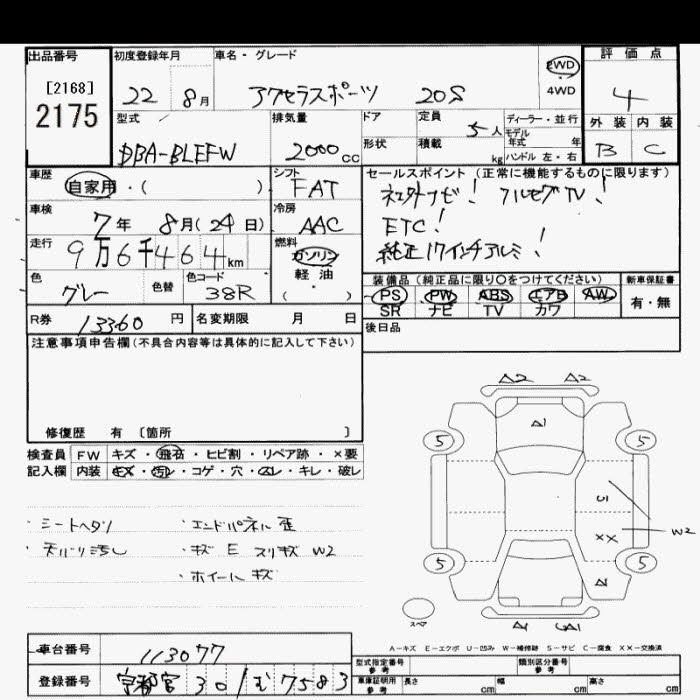 出品番号
[2168]
2175
初度登録年月
22 8月
車名・グレード
アクセラスポーツ 20S
2WD
4WD
評価点
4
型式
DBA-BLEFW
排気量
2000cc
ドア
形状
定員
5人
積載
kg
ディーラー・並行
モデル年式 年
ハンドル 左・右
外装 内装
B C
車歴
自家用・( )
シフト
FAT
車検
7年 8月(24日)
冷房
AAC
走行
9万6千464km
燃料
ガソリン
軽油
( ・ )
色
グレー
色替
色コード
38R
セールスポイント (正常に機能するものに限ります)
社外ナビ! フルセグTV!
ETC!
純正17インチアルミ!
装備品(純正品に限り○をつけてください)
PS PW ABS エアB AW
SR ナビ TV カワ
新車保証書
有・無
R券 13360円
名変期限 月 日
後日品
注意事項申告欄(不具合内容等は具体的に記入して下さい)
修復歴 有 〔箇所 〕
検査員 FW キズ・飛石・ヒビ割・リペア跡・×要
記入欄 内装 キズ・汚レ・コゲ・穴・スレ・キレ・破レ
・シートヘタリ ・エンドパネル歪
・天バリ汚し ・キズ E スリキズ W2
・ホイールキズ
A2 A2
A1
5 5
U1
XX
W2
A1
5 5
スペア
A1 A1
A-キズ E-エクボ U-凹み W-補修跡 S-サビ C-腐食 XX-交換済
車台番号
113077
登録番号
宇都宮 301 む 7583
型式指定番号
参考
類別区分番号
参考
車庫証明用
参考
長さ cm
幅 cm
高さ cm